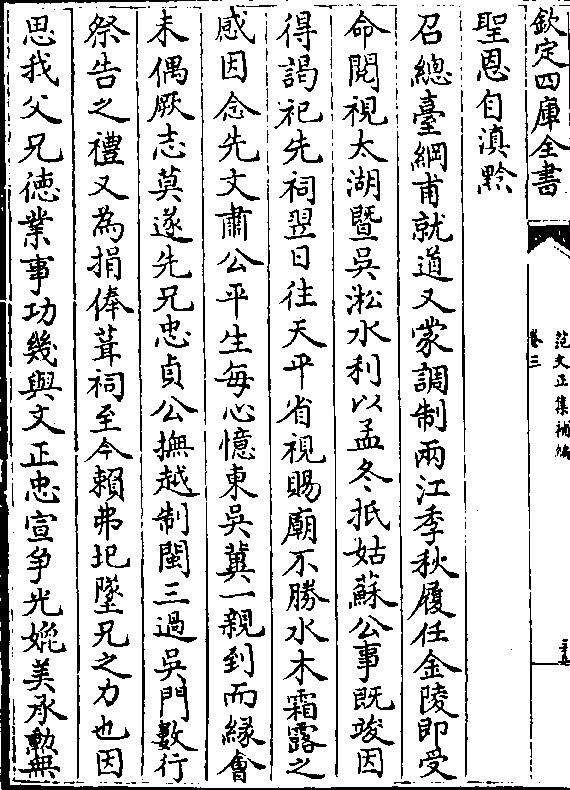 欽定四庫全書
范文正集補編
卷三
聖恩自滇黔
召總臺綱甫就道又蒙調制兩江季秋履任金陵即受
命閱視太湖暨吳淞水利以孟冬抵姑蘇公事既竣因
得謁祀先祠翌日往天平省視賜廟不勝水木霜露之
感因念先文肅公平生每心憶東吳冀一親到而緣會
未偶厥志莫遂先兄忠貞公撫越制閩三過吳門數行
祭告之禮又為捐俸葺祠至今賴弗圮墜兄之力也因
思我父兄德業事功幾與文正忠宣爭光媲美承勳無